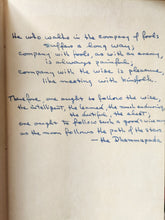 He who walks in the company of fools
suffers a long way;
company with fools, as with an enemy,
is always painful;
company with the wise is pleasure,
like meeting with kinsfolk.
Therefore, one ought to follow the wise,
the intelligent, the learned, the much enduring,
the dutiful, the elect;
one ought to follow such a good wise man
as the moon follows the path of the stars
— the Dhammapada